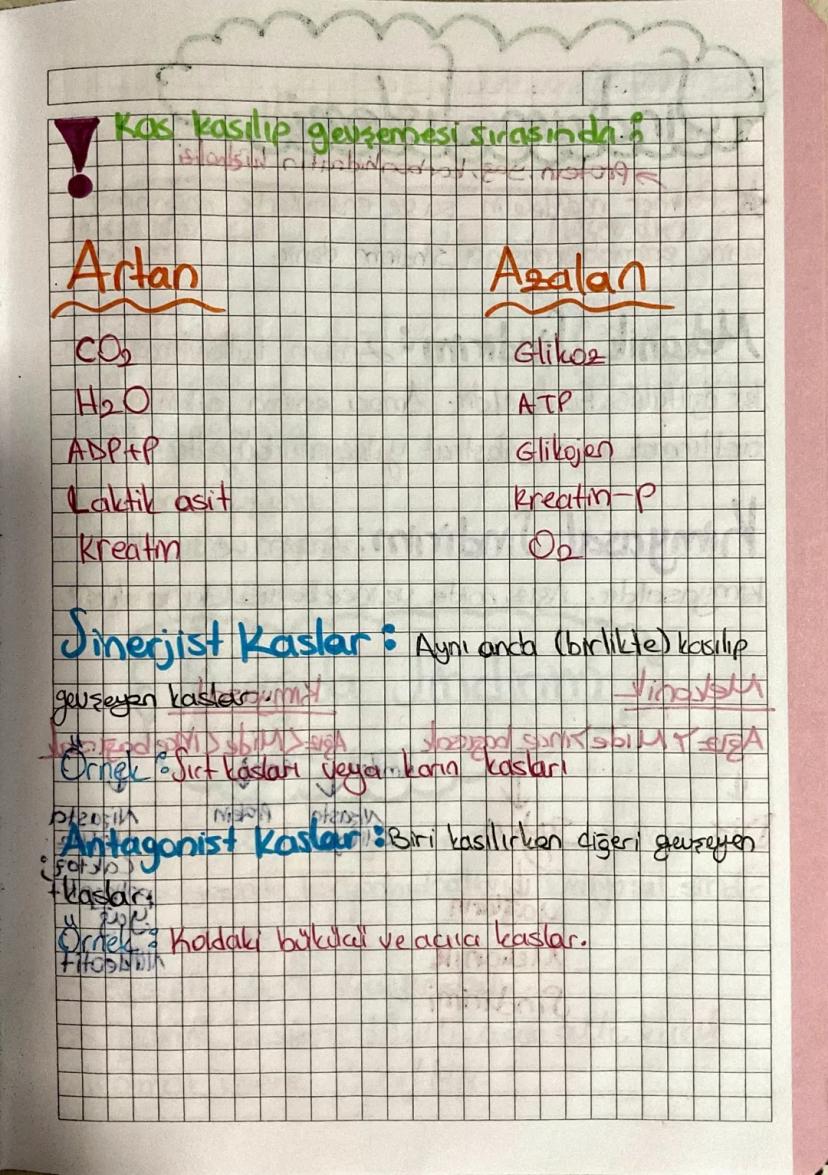 ! Kas kasılıp gevşemesi sırasında:
Artan Azalan
CO₂ Glikoz
H₂O ATP
ADP+P Glikojen
Laktik asit Kreatin-P
Kreatin O₂
Sinerjist Kaslar: Aynı anda (birlikte) kasılıp
gevşeyen kaslar.
Örnek: Sırt kasları veya karın kasları
Antagonist Kaslar: Biri kasılırken diğeri gevşeyen
kaslar.
Örnek: Koldaki bükücü ve açıcı kaslar.